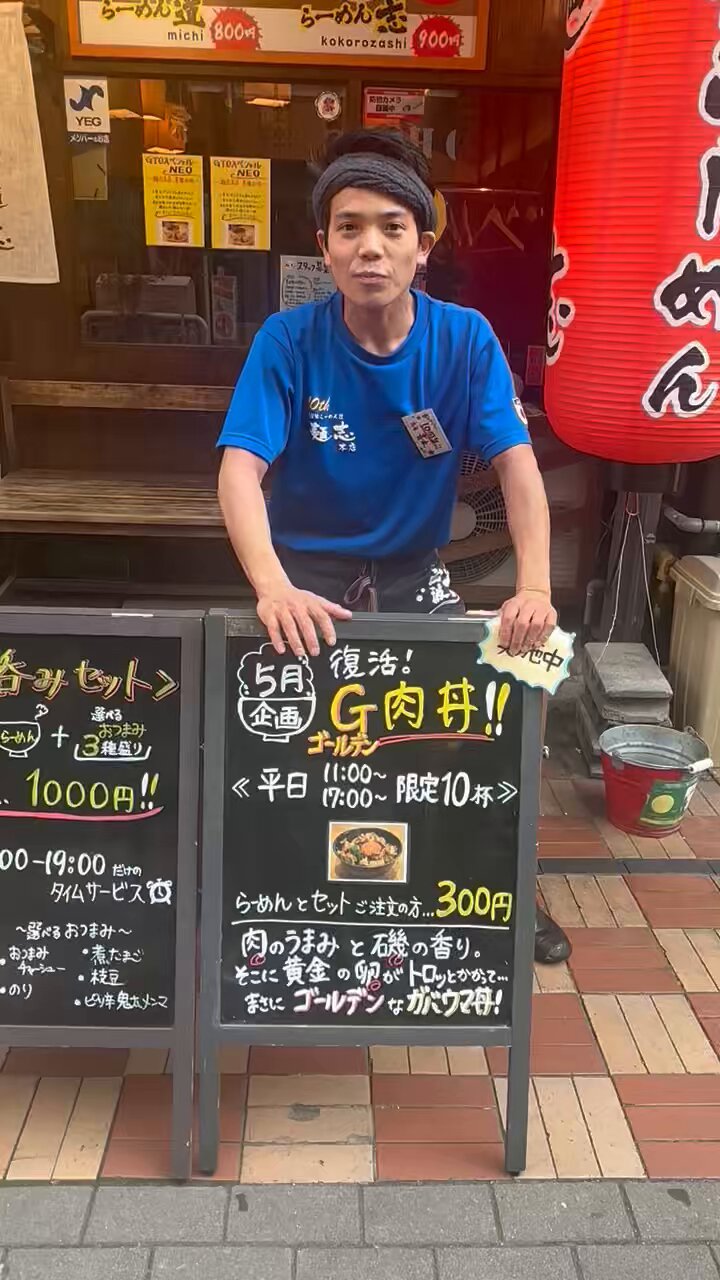 らーめん道
michi 800円
らーめん志
kokorozashi 900円
YEG
メンバーのお店
GTOスペシャル
NEO
GTOスペシャル
NEO
防犯カメラ
スタッフ募
めん
10th
麺志
本店
呑みセット>
らーめん
+
選べる
おつまみ
3種盛り
1000円!!
00-19:00 だけの
タイムサービス
~選べるおつまみ~
・おつまみチャーシュー
・のり
・煮たまご
・枝豆
・ピリ辛鬼メンマ
5月
企画
復活!
G肉丼!!
ゴールデン
実施中
≪平日 11:00~17:00~ 限定10杯≫
らーめんとセットご注文の方…300円
肉のうまみと磯の香り。
そこに黄金の卵がトロッとかかって…
まさにゴールデンなガバウマ丼!